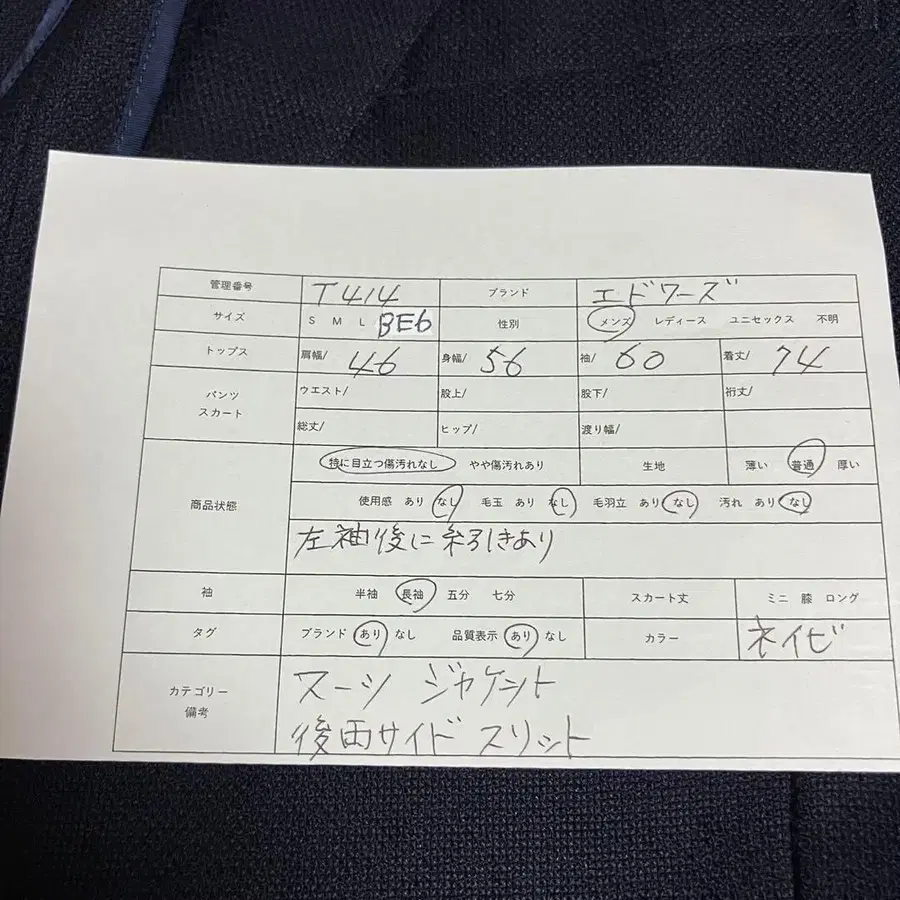 管理番号 T414 ブランド エドワーズ
サイズ S M L BE6 性別 メンズ レディース ユニセックス 不明
トップス 肩幅/ 46 身幅/ 56 袖/ 60 着丈/ 74
パンツ スカート ウエスト/ 股上/ 股下/ 裄丈/
総丈/ ヒップ/ 渡り幅/
商品状態 特に目立つ傷汚れなし やや傷汚れあり 生地 薄い 普通 厚い
使用感 あり なし 毛玉 あり なし 毛羽立 あり なし 汚れ あり なし
左袖後に糸引きあり
袖 半袖 長袖 五分 七分 スカート丈 ミニ 膝 ロング
タグ ブランド あり なし 品質表示 あり なし カラー ネイビ
カテゴリー 備考 スーツ ジャケット
後両サイド スリット